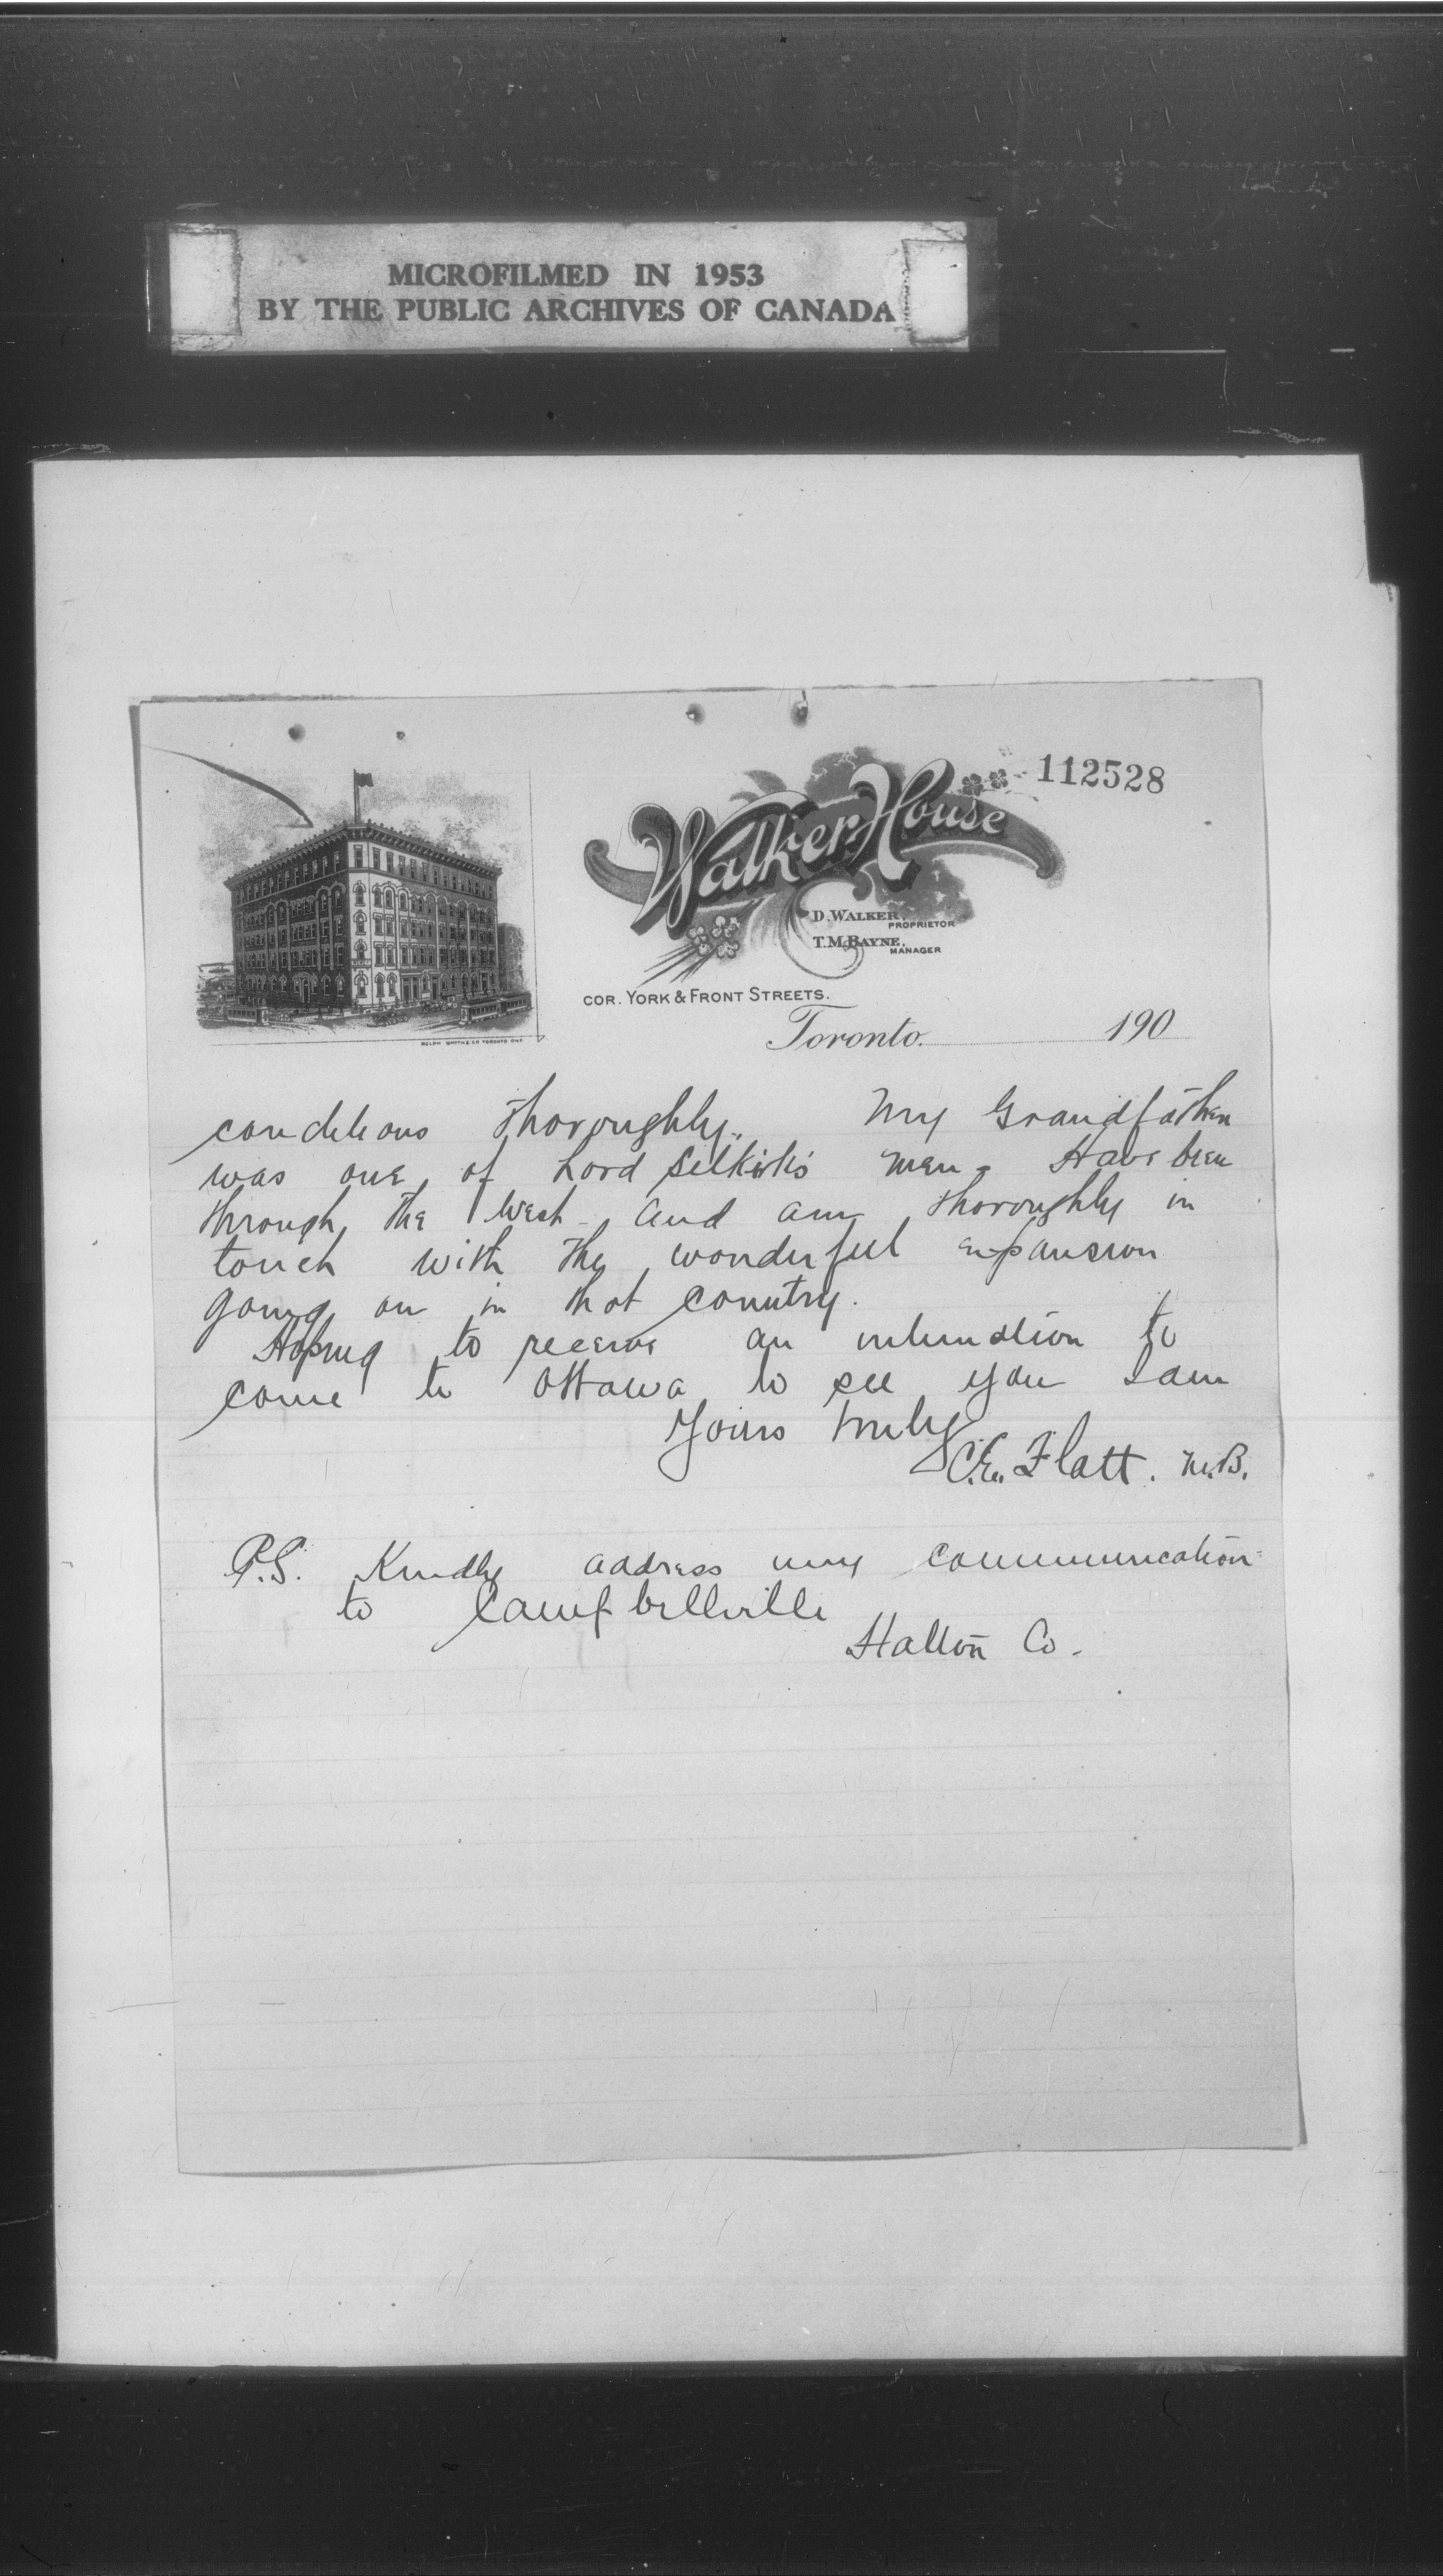 MICROFILMED IN 1953
BY THE PUBLIC ARCHIVES OF CANADA
112528
Walker House
D. WALKER, PROPRIETOR
T.M. BAYNE, MANAGER
COR. YORK & FRONT STREETS.
Toronto. 190
ROLPH SMITH & CO TORONTO ONT
conditions thoroughly. My Grandfather
was one of Lord Selkirk's men. Have been
through the West and am thoroughly in
touch with the wonderful expansion
going on in that country.
Hoping to receive an to
come to Ottawa to see you I am
Yours truly
C.E. Flatt. M.B.
P.S. Kindly address any communication
to Campbellville
Halton Co.